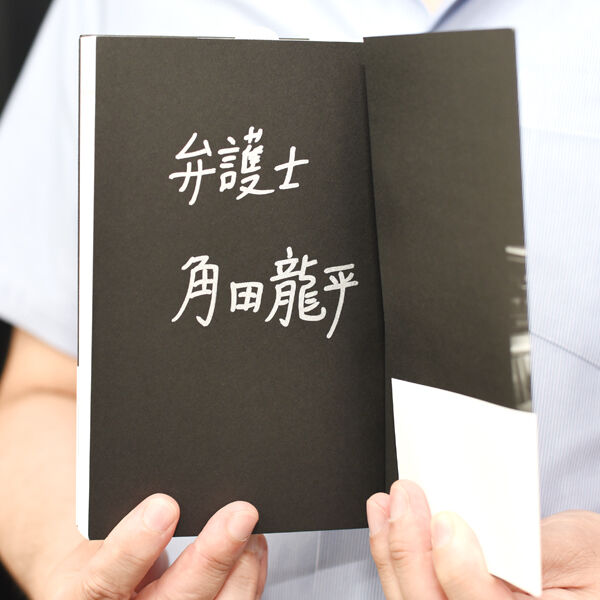 弁護士
角田龍平